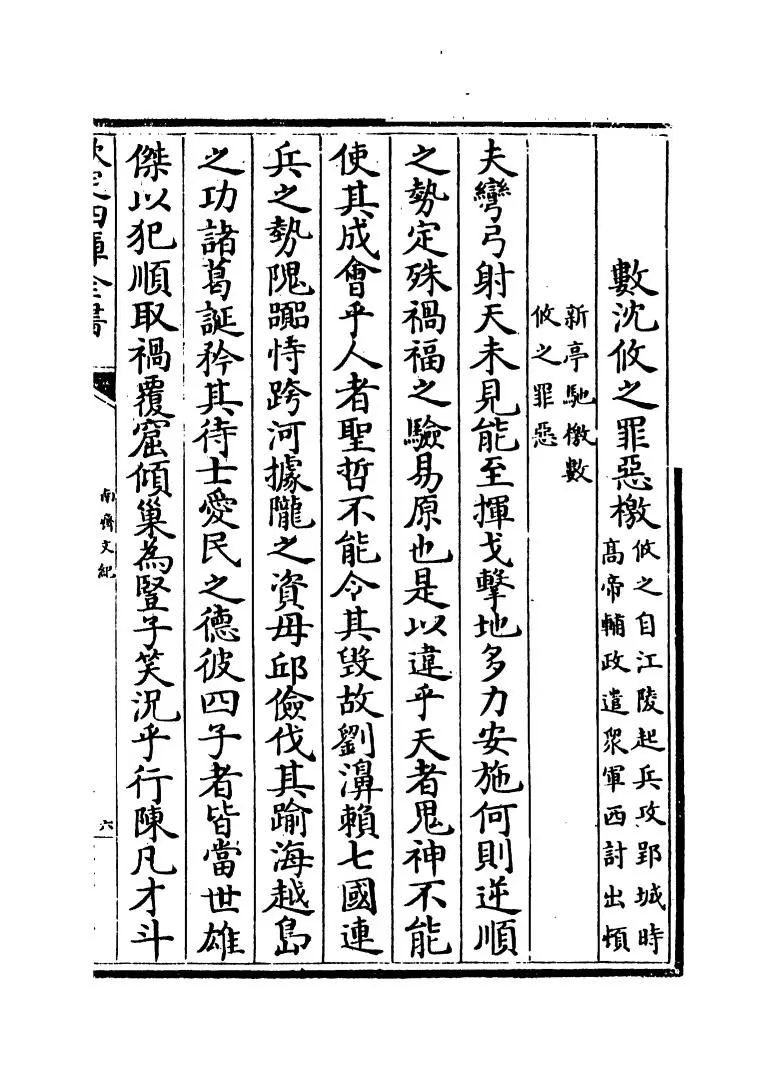 數沈攸之罪惡檄攸之自江陵起兵攻郢城時
高帝輔政遣衆軍西討出頓
新亭馳檄數
攸之罪惡
夫彎弓射天未見能至揮戈擊地多力安施何則逆順
之勢定殊禍福之驗易原也是以違乎天者鬼神不能
使其成會乎人者聖哲不能令其毀故劉濞賴七國連
兵之勢隗嚻恃跨河據隴之資毋邱儉伐其踰海越島
之功諸葛誕矜其待士愛民之德彼四子者皆當世雄
傑以犯順取禍覆窟傾巢為豎子笑況乎行陳凡才斗
欽定四庫全書
南齊文紀
六